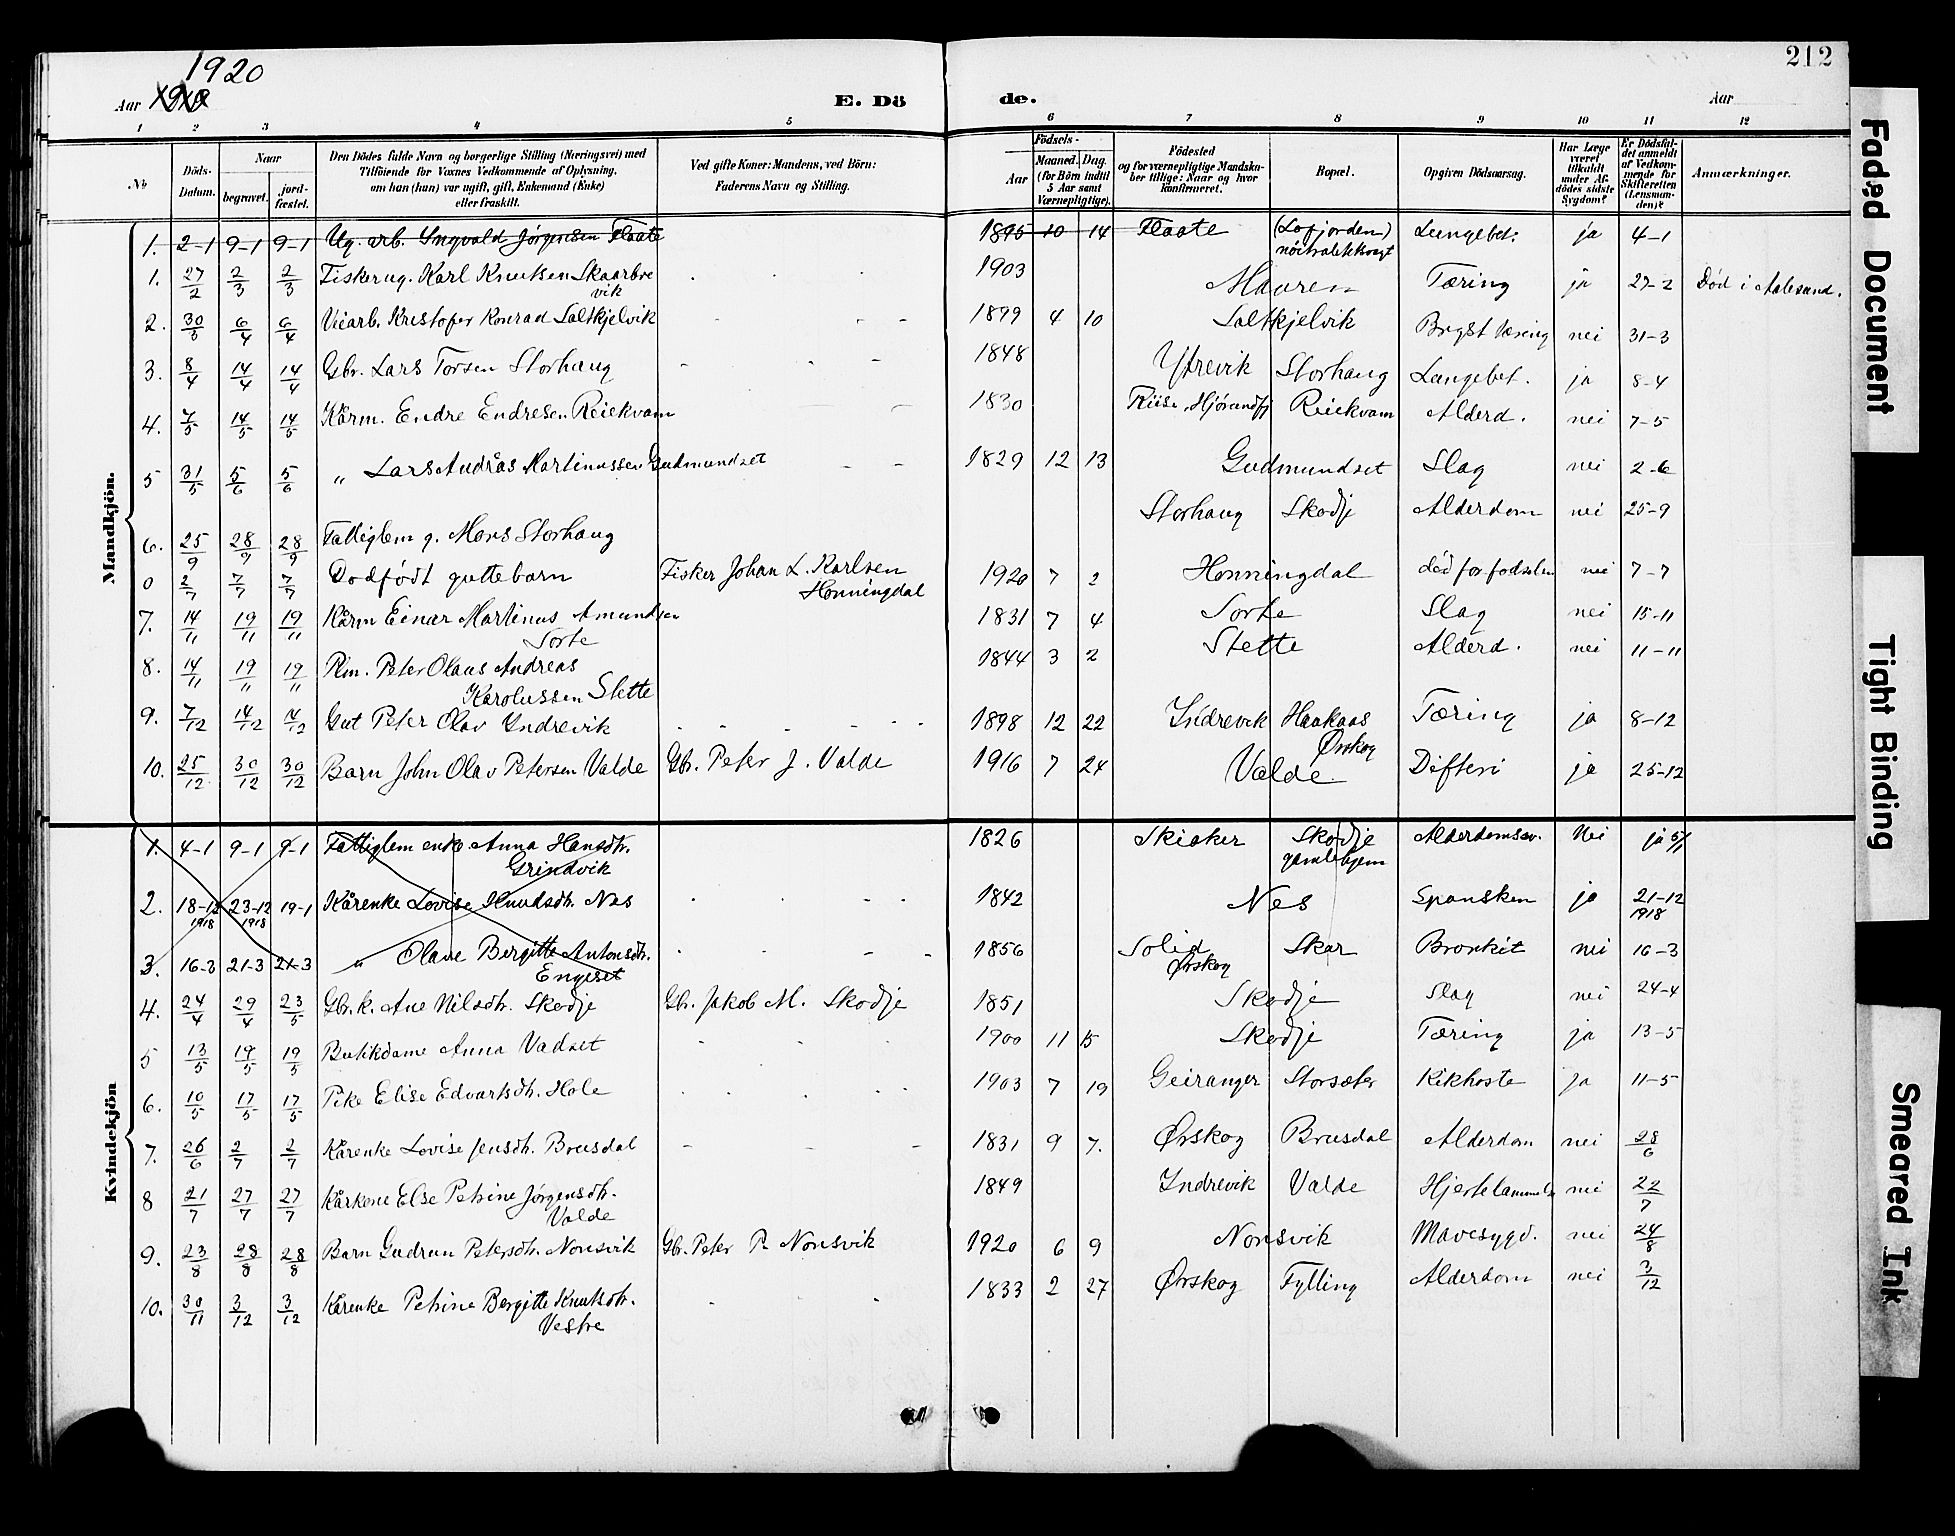 1920
212
Aar 1919
E. Dö
de.
Aar
1 2 3 4 5 6 7 8 9 10 11 12
No
Döds-Datum.
Naar
begravet.
jord-fæstet.
Den Dödes fulde Navn og borgerlige Stilling (Næringsvei) med
Tilföiende for Voxnes Vedkommende af Oplysning,
om han (hun) var ugift, gift, Enkemand (Enke)
eller fraskilt.
Ved gifte Koner: Mandens, ved Börn:
Faderens Navn og Stilling.
Födsels-
Aar
Maaned. Dag.
(for Börn indtil
5 Aar samt
Værnepligtige).
Födested
og for værnepligtige Mandska-
ber tillige: Naar og hvor
konfirmeret.
Bopæl.
Opgiven Dödsaarsag.
Har Læge
været
tilkaldt
under Af-
dödes sidste
Sygdom?
Er Dödsfal-
det anmeldt
af Vedkom-
mende for
Skifteretten
(Lensman-
den)?
Anmærkninger.
Mandkjön.
1. 2-1 9-1 9-1 Ug. arb. Yngvald Jørgensen Flaate 1895 10 14 Flaate (Lofjorden) Lungebet. ja 4-1
1. 27/2 2/3 2/3 Fisker ug. Karl Knutsen Skaarbre 1903 Mauren Tæring ja 27-2 Død i Aalesund.
vik
2. 30/3 6/4 6/4 Veiarb. Kristofer Konrad Saltkjelvik 1899 4 10 Saltkjelvik Brysttæring nei 31-3
3. 8/4 14/4 14/4 Gbr. Lars Torsen Storhaug 1848 Ytrevik Storhaug Lungebet. ja 8-4
4. 7/5 14/5 14/5 Kårm. Endre Endresen Reiekvam 1830 Riise, Hjørundfj Reiekvam Alderd. nei 7-5
5 31/5 5/6 5/6 " Lars Andreas Martinussen Gudmundset 1829 12 13 Gudmundset Slag nei 2-6
6. 25/9 28/9 28/9 Fattiglem g. Mons Storhaug Storhaug Skodje Alderdom nei 25-9
0 2/7 7/7 7/7 Dødfødt guttebarn Fisker Johan L. Karlsen 1920 7 2 Honningdal død før fødselen nei 7-7
Honningdal
7. 14/11 19/11 19/11 Kårm Einar Martinus Amundsen 1831 7 4 Sorte Slag nei 15-11
Sorte
8. 14/11 19/11 19/11 Peter Olaus Andreas 1844 3 2 Slette Alderd. nei 11-11
Karolussen Slette
9. 7/12 14/12 14/12 Gut Peter Olav Yndrevik 1898 12 22 Indrevik Haakaas Tæring ja 8-12
Ørskog
10. 25/12 30/12 30/12 Barn John Olav Petersen Valde Gbr. Peter J. Valde 1916 7 24 Valde Difteri ja 25-12
Kvindekjön
1. 4-1 9-1 9-1 Fattiglem enke Anna Hansdtr. 1826 Skiaker Skodje Alderdomssv. Nei ja 5/1
Grindvik gamlehjem
2. 18-12 23-12 19-1 Kårenke Lovise Knudsdtr. Nes 1842 Nes Spansken ja 21-12
1918 1918 1918
3. 16-3 21-3 21-3 " Olave Bergitte Antonsdtr. 1856 Solid Skar Bronkit nei 16-3
Engeset Ørskog
4. 24/4 29/4 23/5 Gbr.k. Ane Nilsdtr. Skodje Gbr. Jakob M. Skodje 1851 Skodje Slag nei 24-4
5 13/5 19/5 19/5 Butikdame Anna Vadset 1900 11 15 Skodje Tæring ja 13-5
6. 10/5 17/5 17/5 Pike Elise Edvartsdtr. Hole 1903 7 19 Geiranger Storsæter Kikhoste ja 11-5
7. 26/6 2/7 2/7 Kårenke Lovise Jensdtr. Brusdal 1831 9 7. Ørskog Brusdal Alderdom nei 28/6
8 21/7 27/7 27/7 Kårkone Else Petrine Jørgensdtr. 1849 Indrevik Valde Hjertelammelse nei 22/7
Valde
9. 23/8 28/8 28/8 Barn Gudrun Petersdtr. Nonsvik Gbr. Peter P. Nonsvik 1920 6 9 Nonsvik Mavesygd. nei 24/8
10. 30/11 3/12 3/12 Kårenke Petrine Bergitte Knutsdtr. 1833 2 27 Ørskog Fylling Alderdom nei 3/12
Vestre
Faded Document
Tight Binding
Smeared Ink